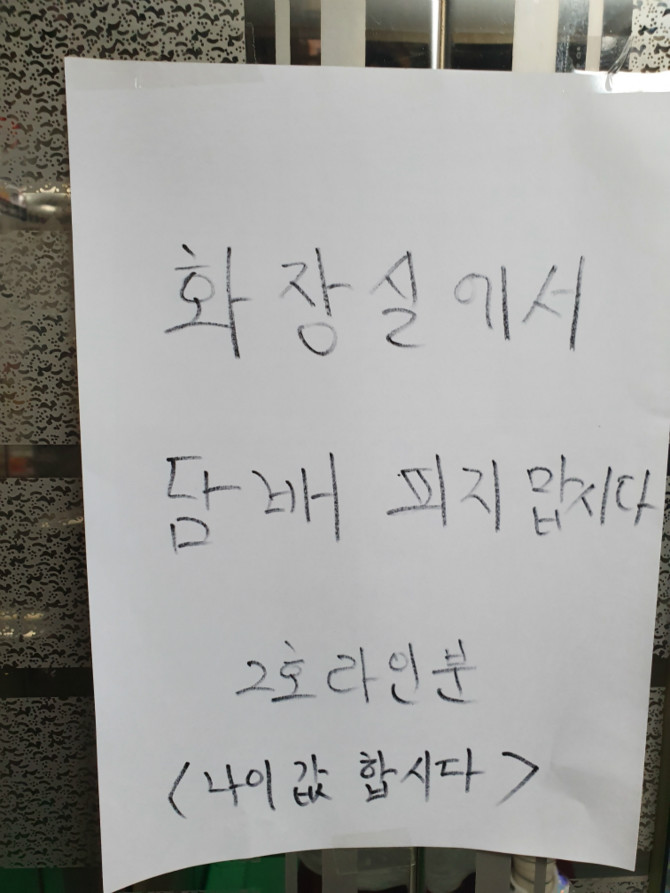 화장실에서
담배 피지 맙시다
2호라인분
<나이값 합시다>